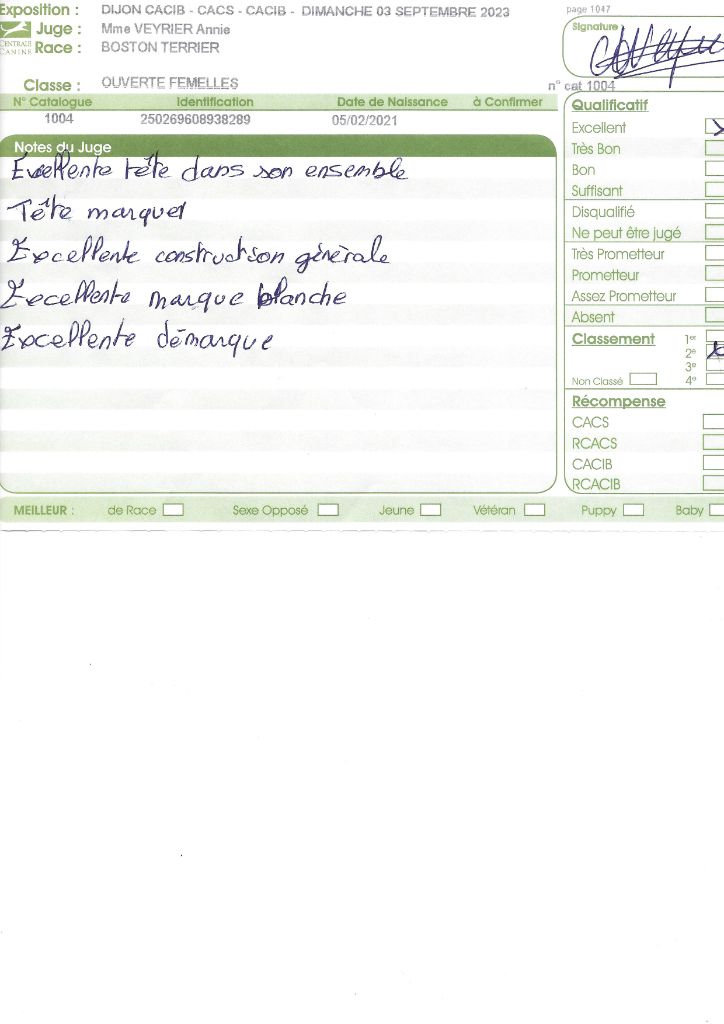 Exposition : DIJON CACIB - CACS - CACIB - DIMANCHE 03 SEPTEMBRE 2023
page 1047
CENTRALE CANINE
Juge : Mme VEYRIER Annie
Race : BOSTON TERRIER
Signature
Classe : OUVERTE FEMELLES
n° cat 1004
N° Catalogue Identification Date de Naissance à Confirmer
1004 250269608938289 05/02/2021
Notes du Juge
Excellente tête dans son ensemble
Tête marquet
Excellente construction générale
Excellente marque blanche
Excellente démarque
Qualificatif
Excellent
Très Bon
Bon
Suffisant
Disqualifié
Ne peut être jugé
Très Prometteur
Prometteur
Assez Prometteur
Absent
Classement 1er
2e
3e
Non Classé 4e
Récompense
CACS
RCACS
CACIB
RCACIB
MEILLEUR : de Race Sexe Opposé Jeune Vétéran Puppy Baby